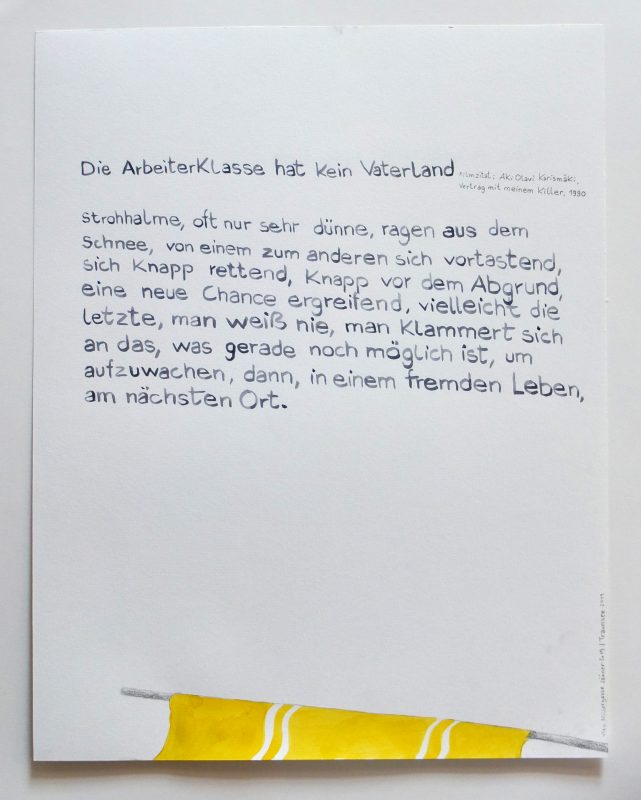 Die ArbeiterKlasse hat kein Vaterland
Filmzitat: Aki Olavi Karismäki,
Vertrag mit meinem Killer, 1990
Strohhalme, oft nur sehr dünne, ragen aus dem
Schnee, von einem zum anderen sich vortastend,
sich Knapp rettend, Knapp vor dem Abgrund,
eine neue Chance ergreifend, vielleicht die
letzte, man weiß nie, man Klammert sich
an das, was gerade noch möglich ist, um
aufzuwachen, dann, in einem fremden Leben,
am nächsten Ort.